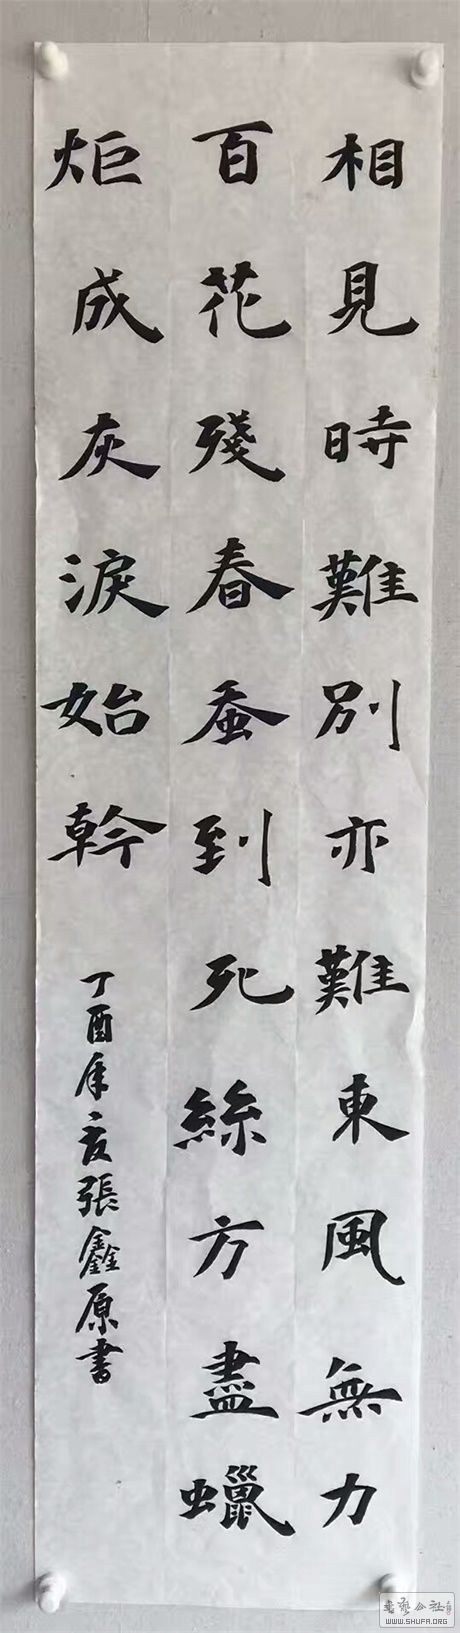 相見時難別亦難東風無力
百花殘春蚕到死絲方盡蠟
炬成灰淚始幹
丁酉年之夏張鑫原書
WWW.SHUFA.ORG